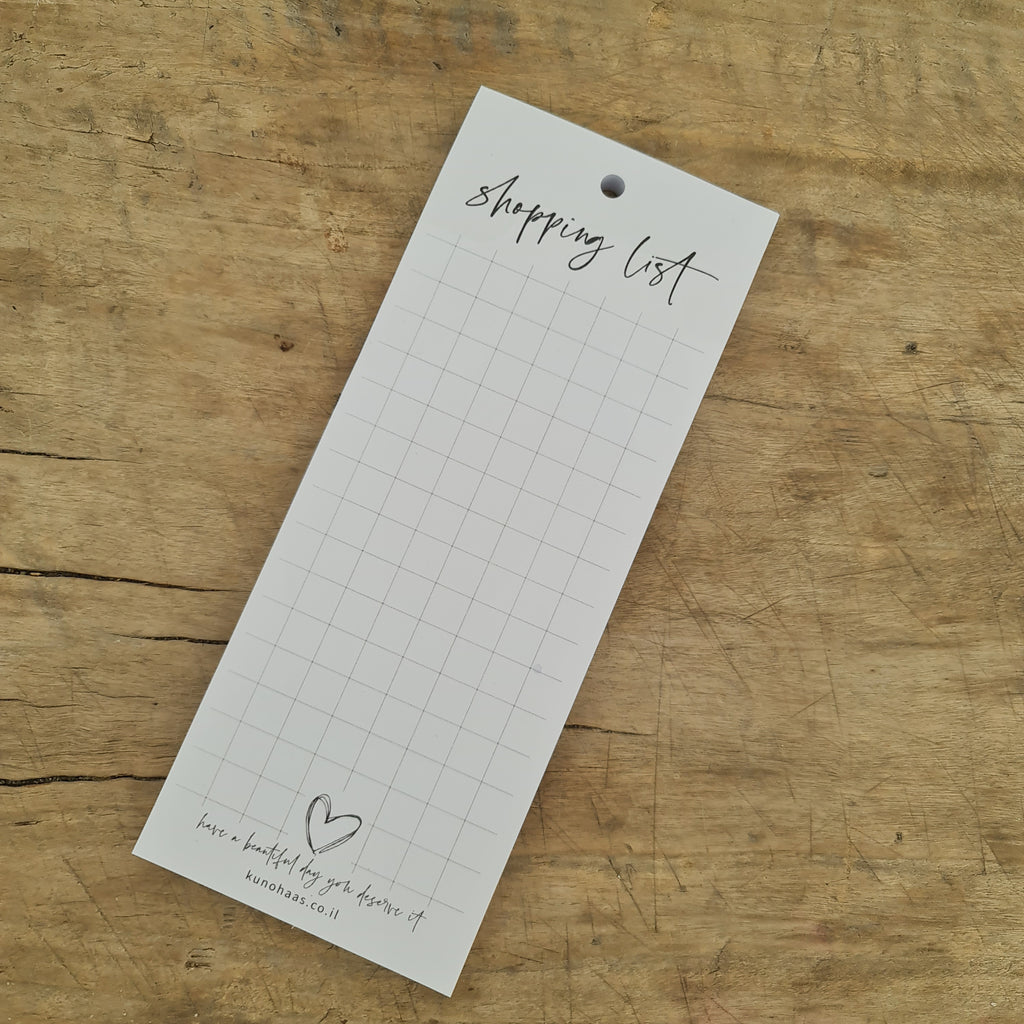 shopping list
have a beautiful day you deserve it
kunohaas.co.il